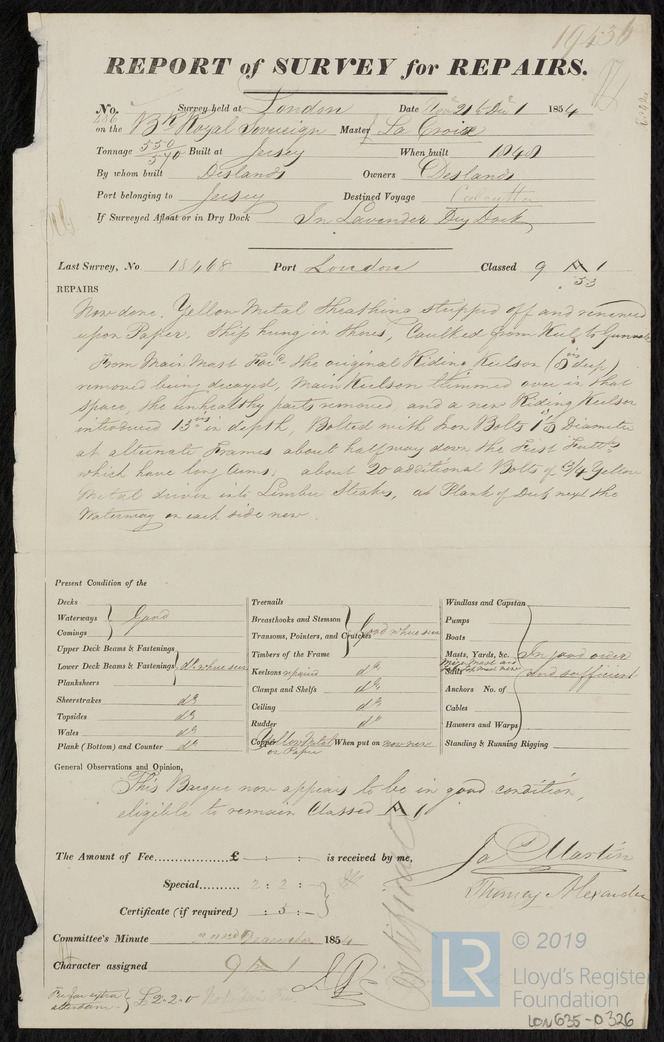 19436
REPORT of SURVEY for REPAIRS.
No. Survey held at London Date Nov 21 to Dec 1 1854
236
on the Bk Royal Sovereign Master La Croix
Tonnage 550 Built at Jersey When built 1848
540
By whom built Deslands Owners Deslands
Port belonging to Jersey Destined Voyage Calcutta
If Surveyed Afloat or in Dry Dock In Lavender Dry Dock
Last Survey, No 18468 Port London Classed 9 A 1
53
REPAIRS
Now done. Yellow Metal Sheathing stripped off and renewed
upon Paper. Ship hung in shores, Caulked from Keel to Gunwale
From Main Mast For'd the original Riding Keelson (8 ins deep)
removed being decayed, Main Keelson trimmed over in that
space, the unhealthy parts removed, and a new Riding Keelson
introduced 13 ins in depth, Bolted with Iron Bolts 1 1/8 Diameter
at alternate Frames about halfway down the First Futts
which have long arms, about 20 additional Bolts of 3/4 Yellow
Metal driven into Limber Strakes, a Plank of Deck next the
Waterway on each side new.
Present Condition of the
Decks
Waterways Good
Comings
Upper Deck Beams & Fastenings
Lower Deck Beams & Fastenings do where seen
Planksheers
Sheerstrakes do
Topsides do
Wales do
Plank (Bottom) and Counter do
Treenails
Breasthooks and Stemson
Transoms, Pointers, and Crutches Good where seen
Timbers of the Frame
Keelsons repaired do
Clamps and Shelfs do
Ceiling do
Rudder do
Copper Yellow Metal When put on now new
on Paper
Windlass and Capstan
Pumps
Boats
Masts, Yards, &c. In good order
Main Mast and
Sails and sufficient
Anchors No. of
Cables
Hawsers and Warps
Standing & Running Rigging
General Observations and Opinion,
This Barque now appears to be in good condition,
eligible to remain Classed A 1
The Amount of Fee £ : : is received by me,
Special 2 : 2 :
Certificate (if required) : 5 :
Jas Martin
Thomas Alexander
Certificate
Committee's Minute December 1854
Character assigned 9 A 1
Fee for extra
attendance £2-2-0
LR
© 2019
Lloyd's Register
Foundation
LON635-0326